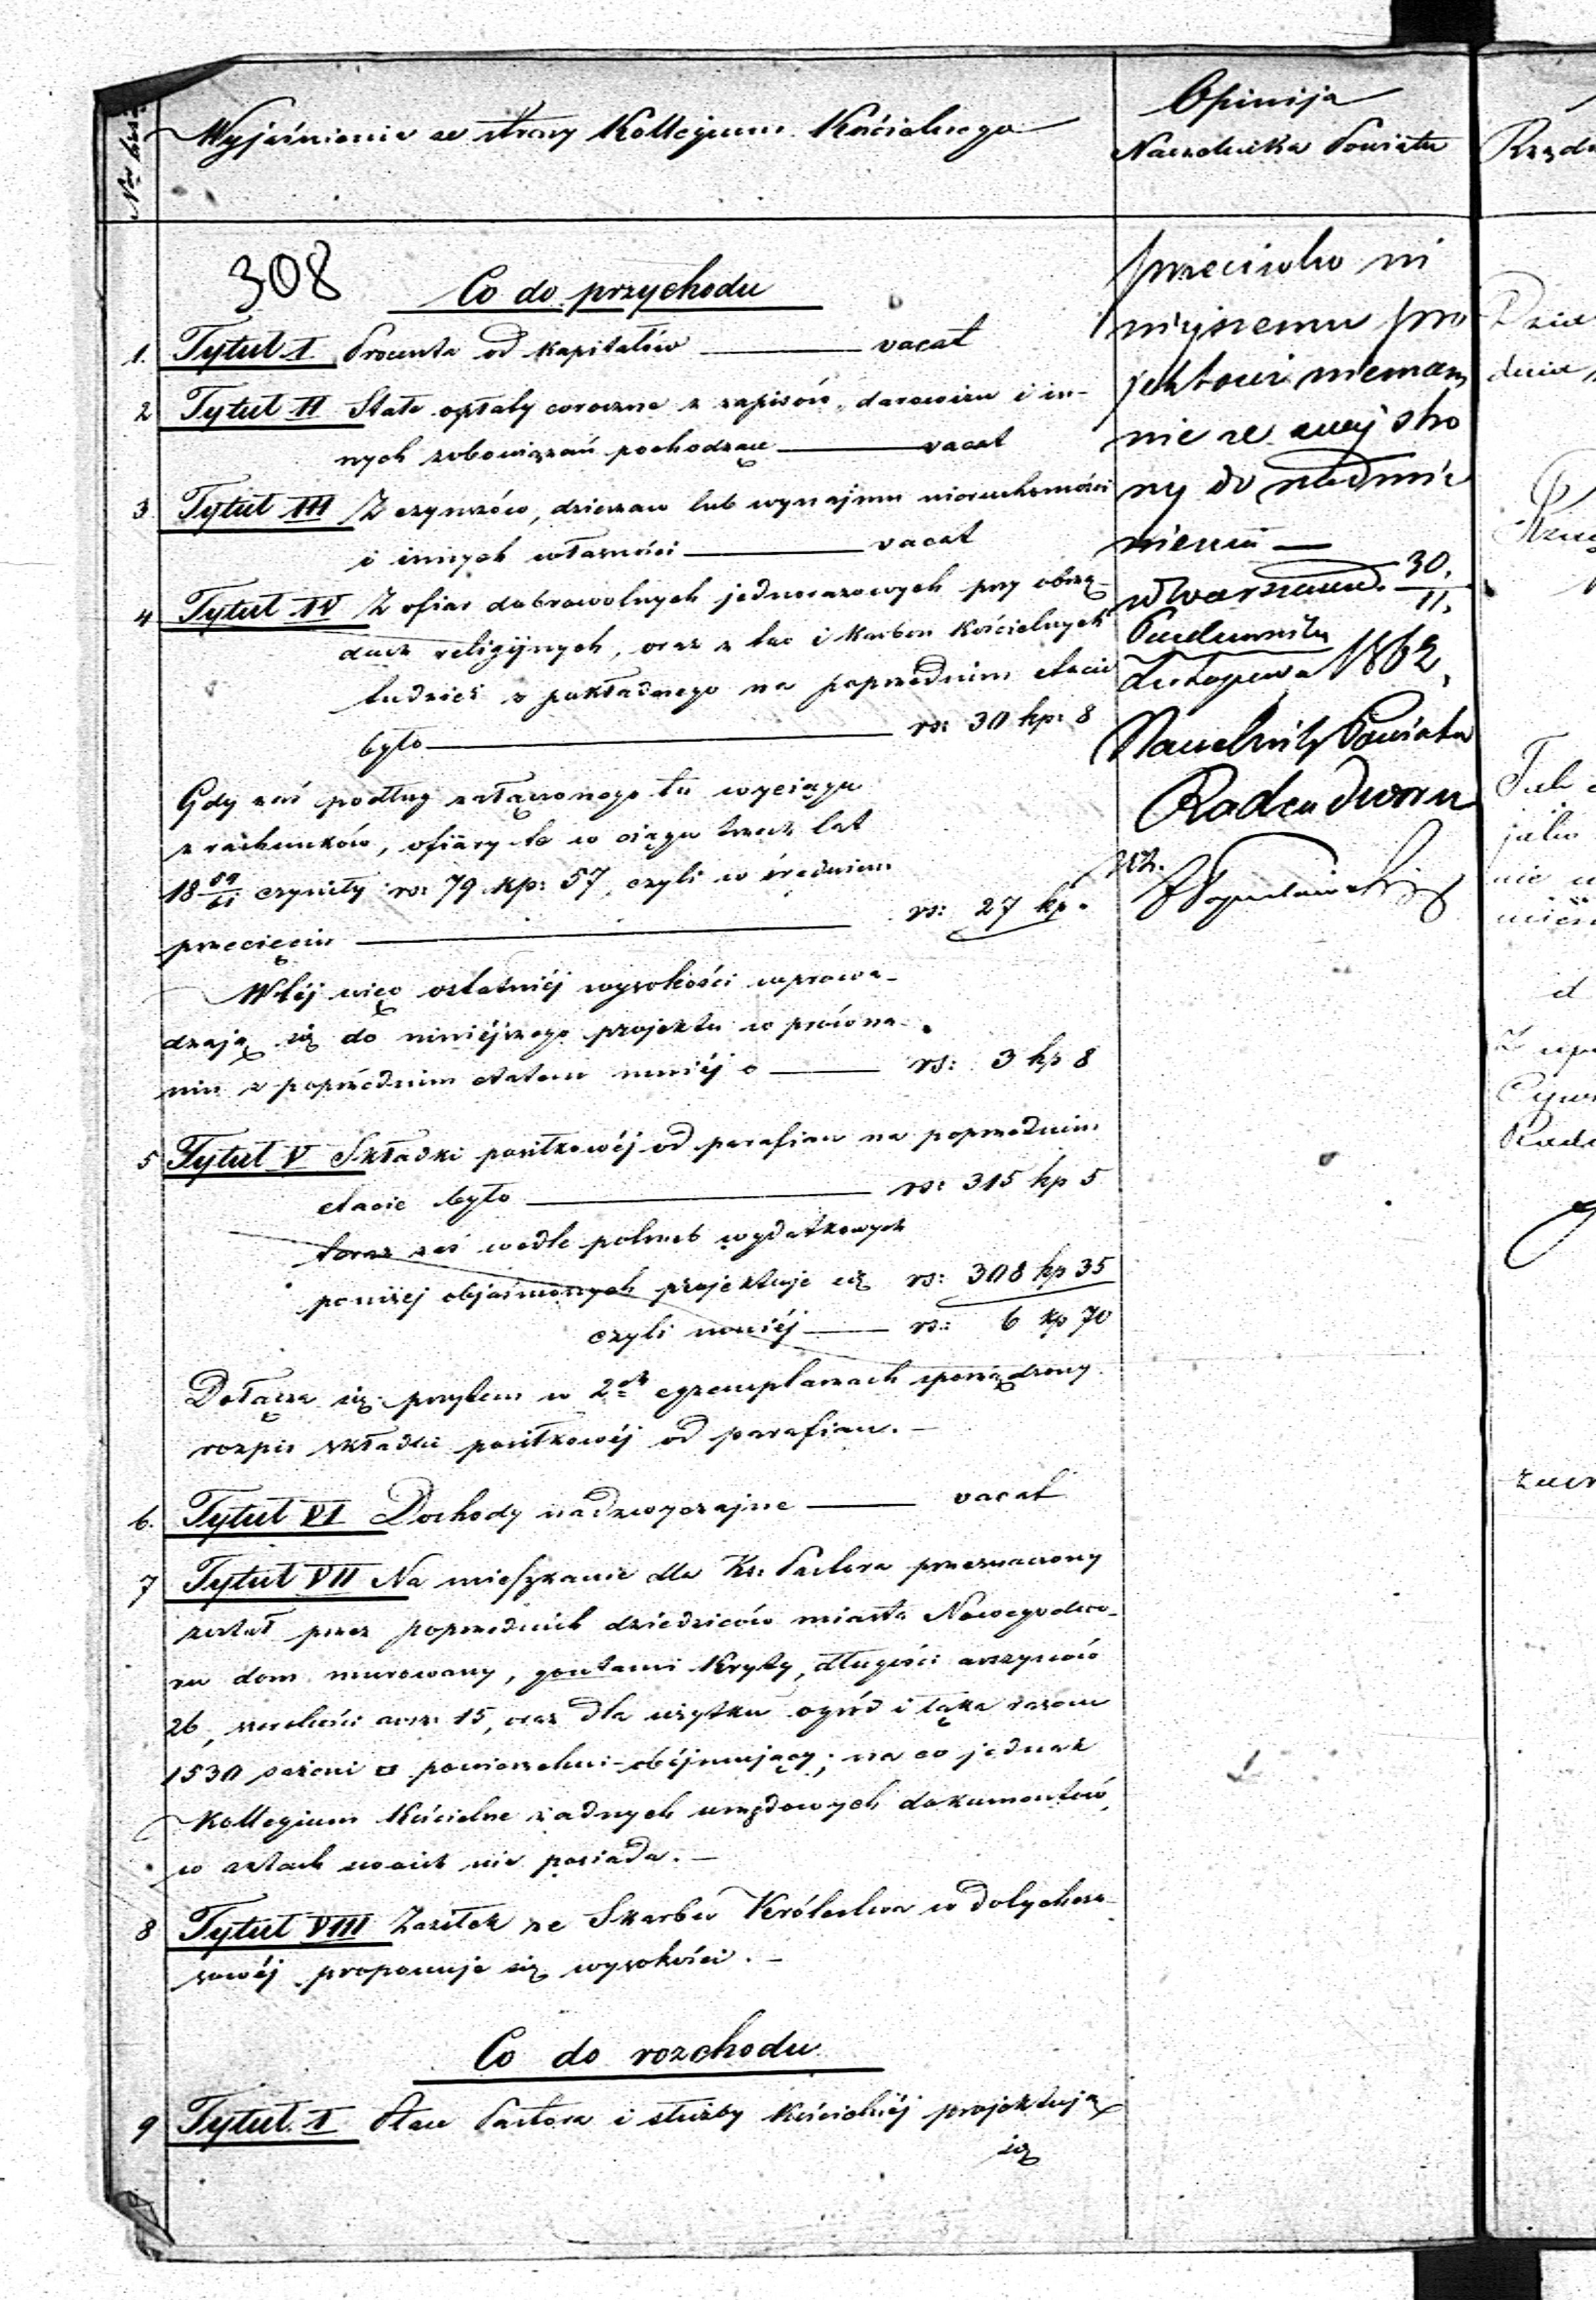 Wyjaśnienie ze strony Kollegium Kościelnego
308
Co do przychodu
1. Tytuł I Procenta od kapitałów — vacat
2 Tytuł II Stałe opłaty coroczne z zapisów, darowizn i in-
nych zobowiązań pochodzące — vacat
3 Tytuł III Z czynszów, dzierzaw lub wynajmu nieruchomości
i innych własności — vacat
4 Tytuł IV Z ofiar dobrowolnych jednorazowych przy obrzę-
dach religijnych, oraz z tac i karbon Kościelnych
tudzież z pokładnego na poprzednim etacie
było — rs: 30 kp: 8
Gdy zaś podług załączonego tu wyciągu
z rachunków, ofiary te w ciągu trzech lat
18 59/61 czyniły rs: 79 kp: 57, czyli w średniem
przecięciu — rs: 27 kp.
W téj więc ostatniéj wysokości wprowa-
dzają się do niniéjszego projektu w porówna-
niu z poprzednim etatem mniéj o — rs: 3 kp 8
5 Tytuł V Składki posiłkowéj od parafian na poprzednim
etacie było — rs: 315 kp 5
teraz zaś wedle potrzeb wydatkowych
poniżej objaśnionych projektuje się rs: 308 kp 35
czyli mniéj — rs: 6 kp 70
Dołącza się przytem w 2ch egzemplarzach sporządzony
rozpis składki posiłkowéj od parafian. —
6. Tytuł VI Dochody nadzwyczajne — vacat
7 Tytuł VII Na mieszkanie dla Ks: Pastora przeznaczony
został przez poprzednich dziedziców miasta Nowegodwo-
ru dom murowany, gontami kryty, długości arszynów
26, szerokości arsz: 15, oraz dla użytku ogród i łąka razem
1530 sążeni □ powierzchni obéjmujący; na co jednak
Kollegium Kościelne żadnych urzędowych dokumentów
w aktach swoich nie posiada. —
8 Tytuł VIII Zasiłek ze Skarbu Królestwa w dotychcza-
sowéj proponuje się wysokości. —
Co do rozchodu
9 Tytuł I Płace Pastora i służby Kościelnéj projektują
się
Opinija
Naczelnika Powiatu
przeciwko ni
niejszemu pro
jektowi niemam
nic ze swej stro
ny do nadmie
nienia —
w Warszawie 30/11
Października
Listopada 1862
Naczelnik Powiatu
Radca Dworu